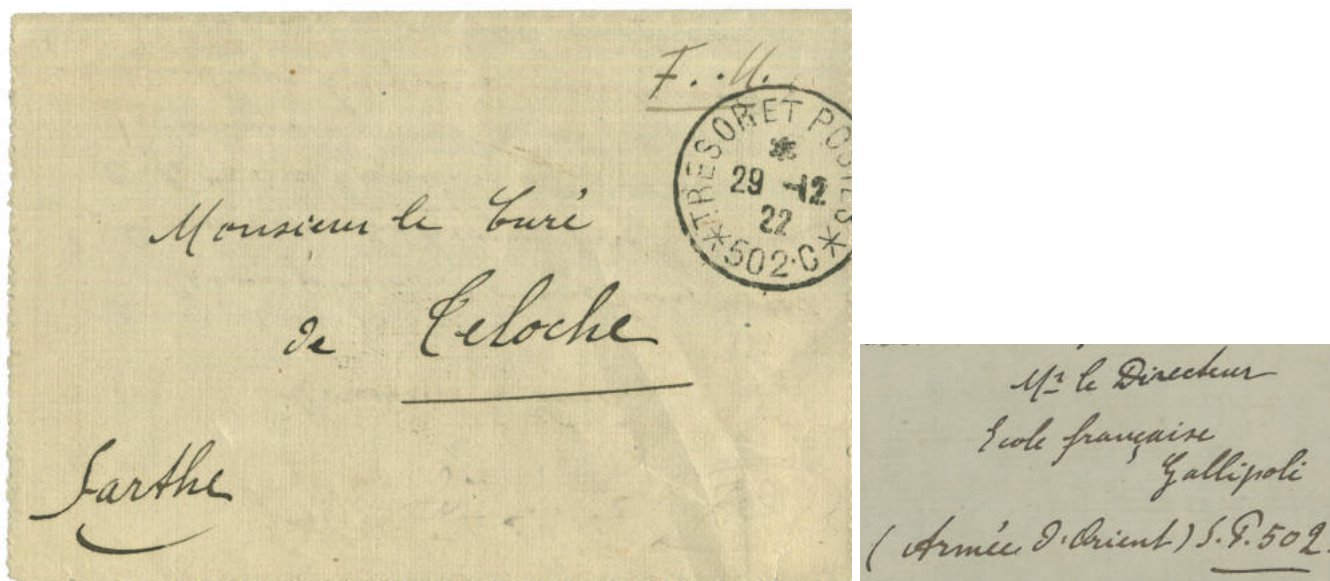 F. M.
TRESOR ET POSTES
29 -12
22
*502·C*
Monsieur le Curé
de Teloche
Sarthe
Mr le Directeur
Ecole française
Gallipoli
(Armée d'Orient) S.P. 502.